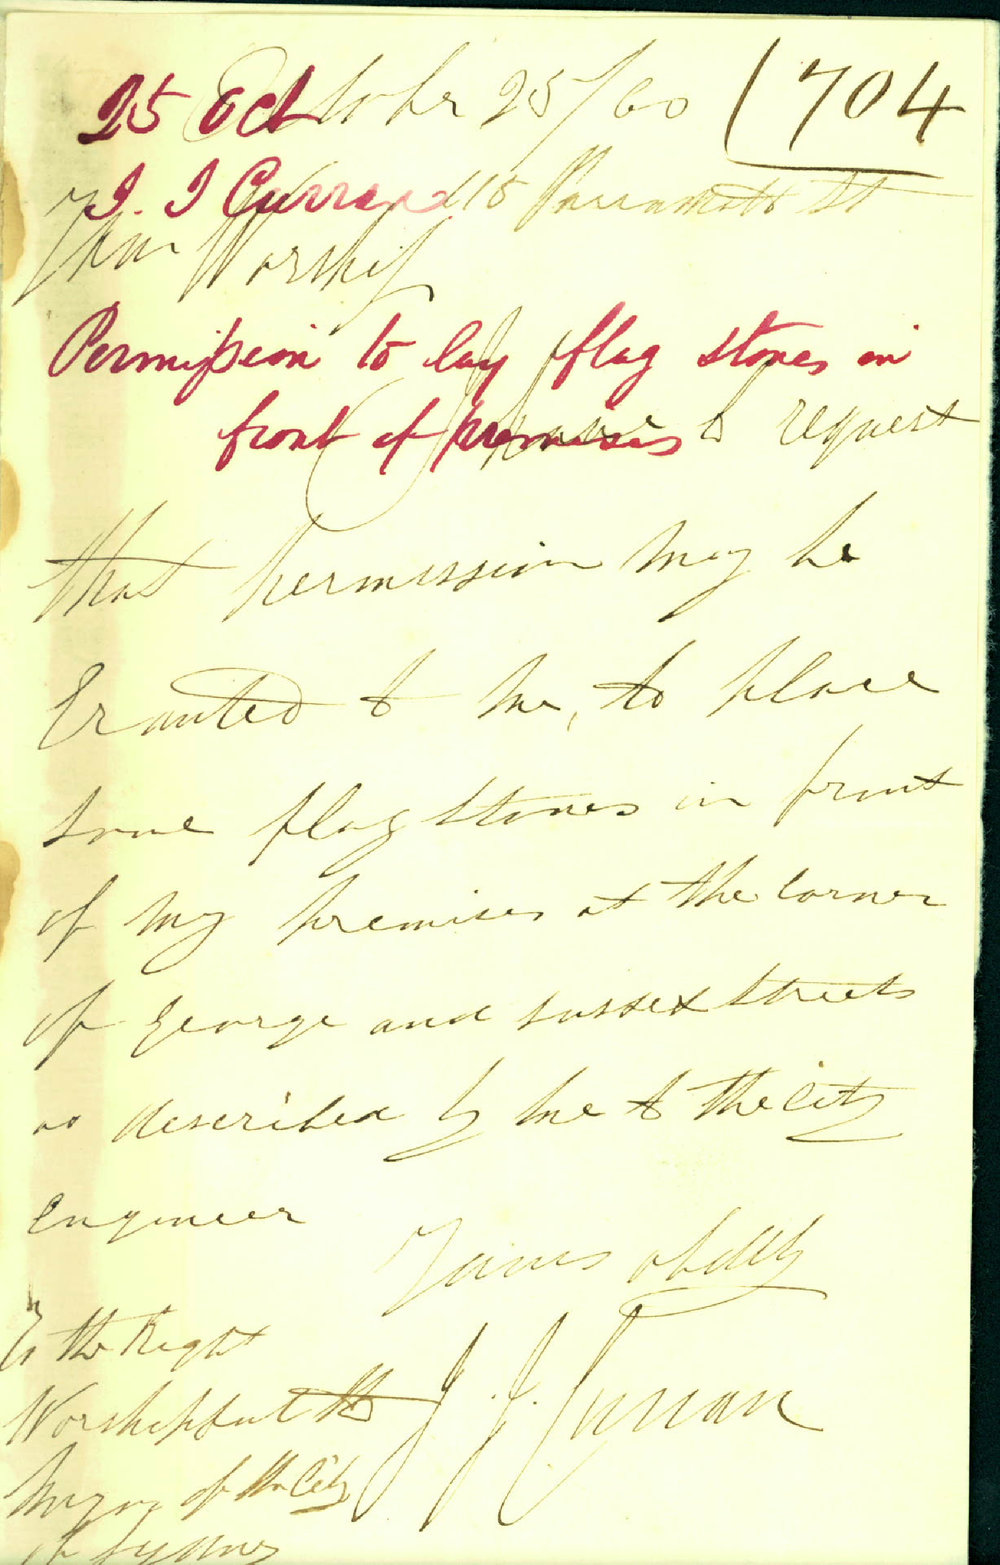 October 25/60
704
25 Oct
J. J Curran
115 Parramatta St
Your Worship
Permission to lay flag stones in
front of premises
I have to request
that permission may be
Granted to me, to place
some flag stones in front
of my premises at the Corner
of George and sussex streets
as described by me to the City
Engineer
Yours obdtly
J. J. Curran
To the Right
Worshipful the
Mayor of the City
of Sydney